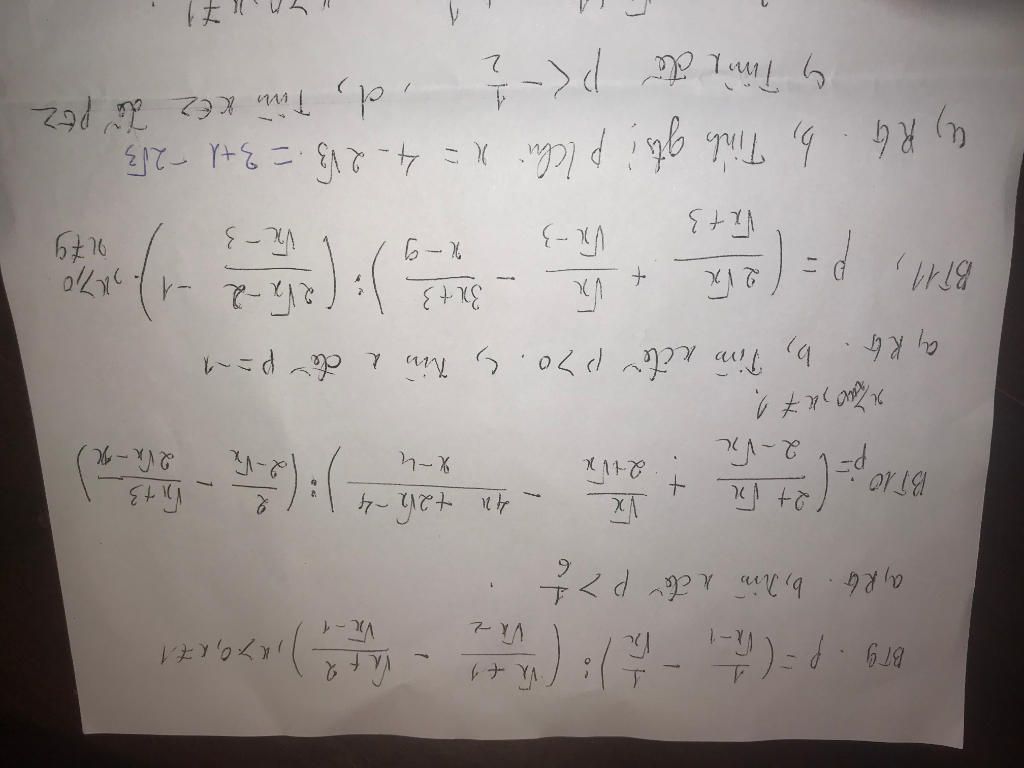 BT9. P = (1/(√x-1) - 1/√x) : ((√x+1)/(√x-2) - (√x+2)/(√x-1)), x>0, x≠1
a, RG. b, Tìm x để P > 1/6.
BT10: P = ((2+√x)/(2-√x) + √x/(2+√x) - (4x+2√x-4)/(x-4)) : (2/(2-√x) - (√x+3)/(2√x-x))
x≠1
a, RG. b, Tìm x để P>0. c, Tìm x để P=-1
BT11, P = (2√x/(√x+3) + √x/(√x-3) - (3x+3)/(x-9)) : ((2√x-2)/(√x-3) - 1). x≥0, x≠9
a, RG. b, Tính gtrị P khi x = 4-2√3. = 3+1-2√3
c, Tìm x để P<-1/2, d, Tìm x∈Z để P∈Z
x≠1